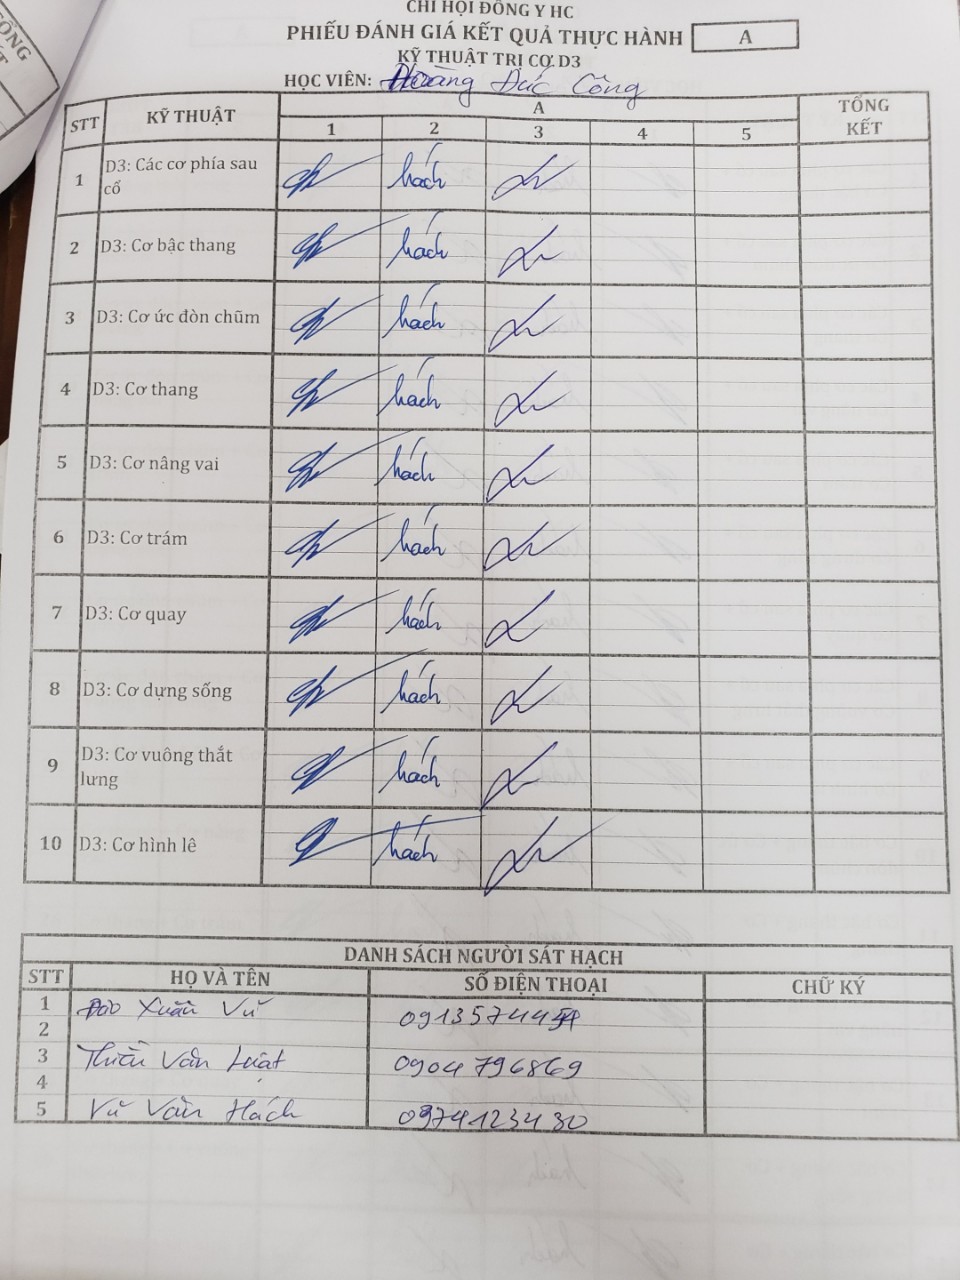 CHI HỘI ĐÔNG Y HC
PHIẾU ĐÁNH GIÁ KẾT QUẢ THỰC HÀNH A
KỸ THUẬT TRỊ CƠ D3
HỌC VIÊN: Hoàng Đức Công
STT KỸ THUẬT A TỔNG KẾT
1 2 3 4 5
1 D3: Các cơ phía sau cổ hách
2 D3: Cơ bậc thang hách
3 D3: Cơ ức đòn chũm hách
4 D3: Cơ thang hách
5 D3: Cơ nâng vai hách
6 D3: Cơ trám hách
7 D3: Cơ quay hách
8 D3: Cơ dựng sống hách
9 D3: Cơ vuông thắt lưng hách
10 D3: Cơ hình lê hách
DANH SÁCH NGƯỜI SÁT HẠCH
STT HỌ VÀ TÊN SỐ ĐIỆN THOẠI CHỮ KÝ
1 Xuân Vũ
2
3 Văn Luật 0904796869
4
5 Vũ Văn Hách 0974123430